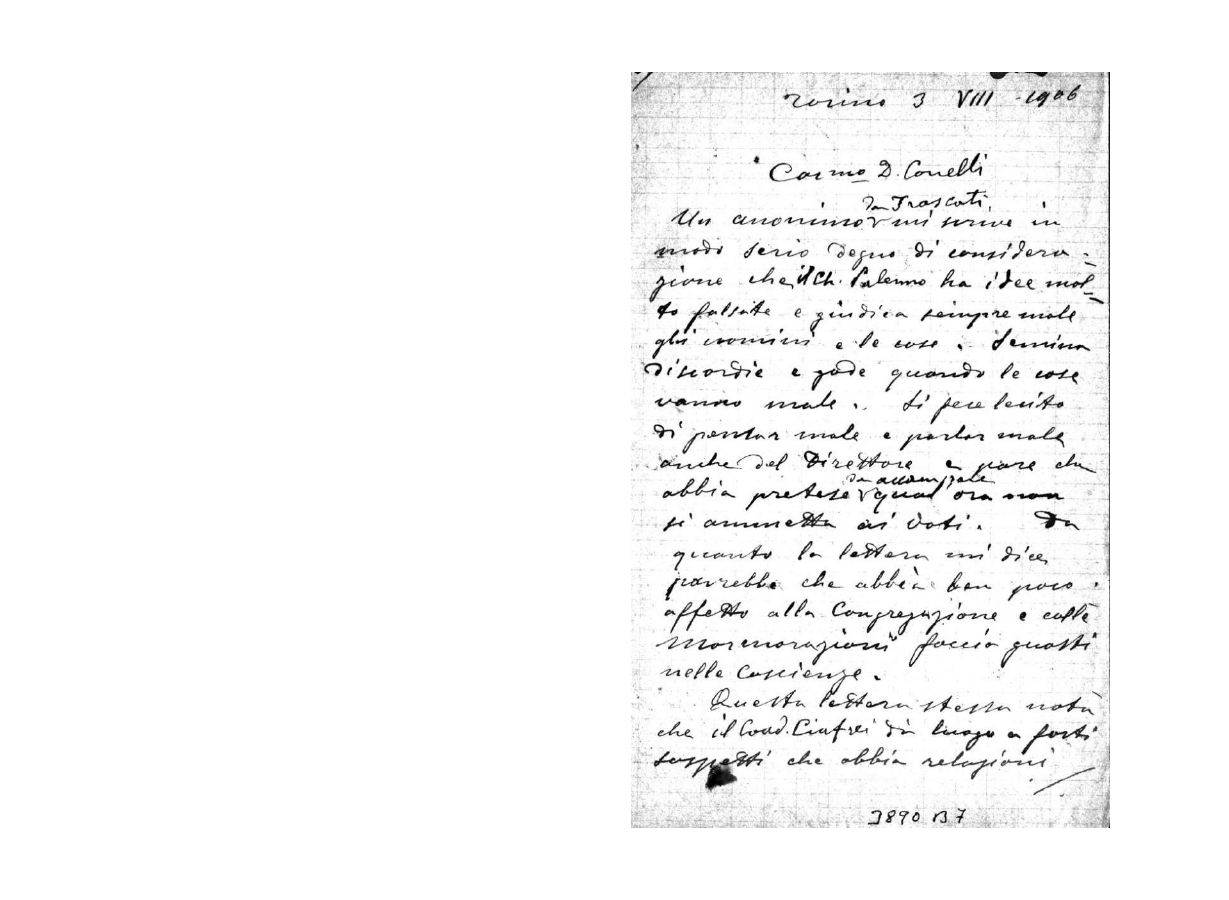 Torino 3 VIII - 1906
Carmo D. Conelli
da Frascati
Un anonimo mi scrive in
modo serio degno di considera-
zione che il Ch. Palermo ha idee mol-
to falsate e giudica sempre male
gli uomini e le cose. Semina
discordie e gode quando le cose
vanno male. Si fece lecito
di pensar male e parlar male
anche del Direttore e pare che
da accampale
abbia pretese qual ora non
si ammetta ai voti. Da
quanto la lettera mi dice
parrebbe che abbia ben poco
affetto alla Congregazione e colle
mormorazioni faccia guasti
nelle coscienze.
Questa lettera stessa nota
che il Coad. Ciafrei dà luogo a forti
sospetti che abbia relazioni
3890 B 7